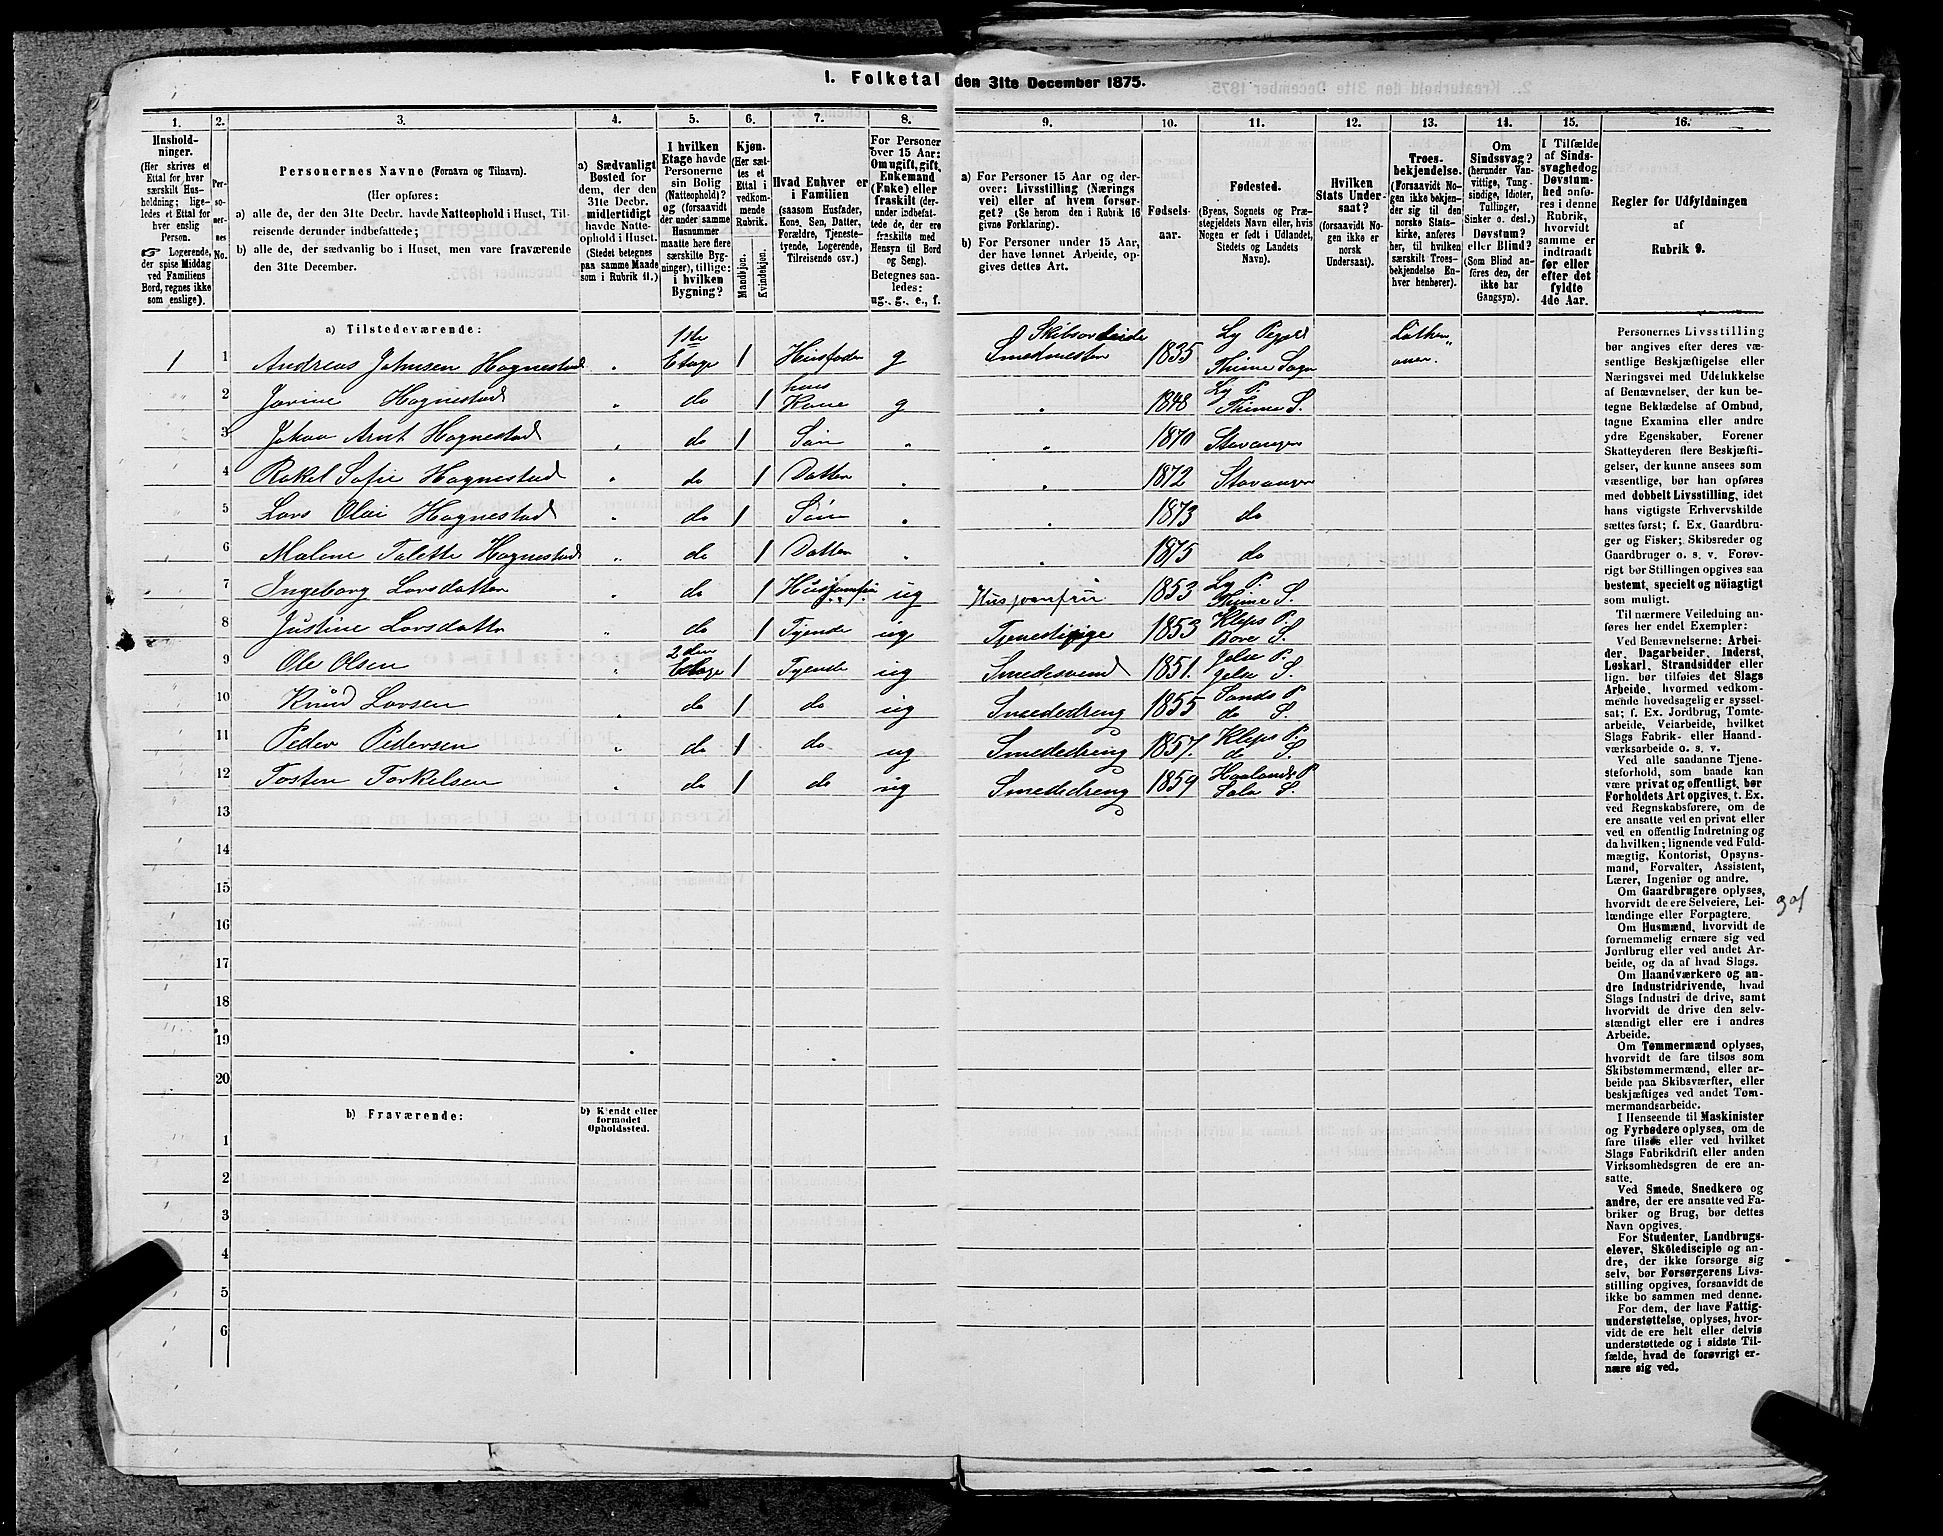 1. Folketal den 31te December 1875.
1. 2. 3. 4. 5. 6. 7. 8. 9. 10. 11. 12. 13. 14. 15. 16.
Hushold-
ninger.
(Her skrives et
Ettal for hver
særskilt Hus-
holdning; lige-
ledes et Ettal for
hver enslig
Person.
☞ Logerende,
der spise Middag
ved Familiens
Bord, regnes ikke
som enslige).
Per-
so-
ner-
nes
No.
Personernes Navne (Fornavn og Tilnavn).
(Her opføres:
a) alle de, der den 31te Decbr. havde Natteophold i Huset, Til-
reisende derunder indbefattede;
b) alle de, der sædvanlig bo i Huset, men vare fraværende
den 31te December.
a) Sædvanligt
Bosted for
dem, der den
31te Decbr.
midlertidigt
havde Natte-
ophold i Huset.
(Stedet betegnes
paa samme Maade
som i Rubrik 11.)
I hvilken
Etage havde
Personerne
sin Bolig
(Natteophold)?
og (forsaavidt
der under samme
Husnummer
maatte høre flere
særskilte Byg-
ninger), tillige:
i hvilken
Bygning?
Kjøn.
(Her sæt-
tes et
Ettal i
vedkom-
mende
Rubrik.
Mandkjøn.
Kvindekjøn.
Hvad Enhver er
i Familien
(saasom Husfader,
Kone, Søn, Datter,
Forældre, Tjeneste-
tyende, Logerende,
Tilreisende osv.)
For Personer
over 15 Aar:
Om ugift, gift,
Enkemand
(Enke) eller
fraskilt (der-
under indbefat-
tede de, der ere
fraskilte med
Hensyn til Bord
og Seng).
Betegnes saa-
ledes:
ug., g., e., f.
a) For Personer 15 Aar og der-
over: Livsstilling (Nærings
vei) eller af hvem forsør-
get? (Se herom den i Rubrik 16
givne Forklaring).
b) For Personer under 15 Aar,
der have lønnet Arbeide, op-
gives dettes Art.
Fødsels-
aar.
Fødested.
(Byens, Sognets og Præ-
stegjeldets Navn eller, hvis
Nogen er født i Udlandet,
Stedets og Landets
Navn).
Hvilken
Stats Under-
saat?
(forsaavidt No-
gen ikke er
norsk
Undersaat).
Troes-
bekjendelse.
(Forsaavidt No-
gen ikke bekjen-
der sig til den
norske Stats-
kirke, anføres
her, til hvilken
særskilt Troes-
bekjendelse En-
hver henhører).
Om
Sindssvag?
(herunder Van-
vittige, Tung-
sindige, Idioter,
Tullinger,
Sinker o. desl.)
Døvstum?
eller Blind?
(Som Blind an-
føres den, der
ikke har
Gangsyn).
I Tilfælde
af Sinds-
svaghed og
Døvstum-
hed anfø-
res i denne
Rubrik,
hvorvidt
samme er
indtraadt
før eller
efter det
fyldte
4de Aar.
Regler for Udfyldningen
af
Rubrik 9.
a) Tilstedeværende:
1 1 Andreas Johnsen Hognestad " 1ste Etage 1 Huusfader g Skibssmede Smedmester 1835 Ly Pgjeld Thime Sogn Lutheraner.
2 Jorine Hognestad " do 1 hans Kone g " 1848 Ly P. Thime S.
3 Johan Arnt Hognestad " do 1 Søn " " 1870 Stavanger
4 Rakel Sofie Hognestad " do 1 Datter " " 1872 Stavanger
5 Lars Olai Hognestad " do 1 Søn " " 1873 do
6 Malene Talette Hognestad " do 1 Datter " 1875 do
7 Ingeborg Larsdatter " do 1 Husjomfru ug Husjomfru 1853 Ly P. Thime S.
8 Justine Larsdatter " do 1 Tyende ug Tjenestepige 1853 Kleps P. Bore S.
9 Ole Olsen " 2den Etage 1 Tyende ug Smedesvend 1851. Jelse P. Jelse S.
10 Knud Larsen " do 1 do ug Smededreng 1855 Sands P. do S.
11 Peder Pedersen " do 1 do ug Smededreng 1857. Kleps P. do S.
12 Tosten Torkelsen " do 1 do ug Smededreng 1859 Haalands P. Sola S.
13
14
15
16
17
18
19
20
b) Fraværende:
b) Kjendt eller
formodet
Opholdssted.
1
2
3
4
5
6
Personernes Livsstilling
bør angives efter deres væ-
sentlige Beskjæftigelse eller
Næringsvei med Udelukkelse
af Benævnelser, der kun be-
tegne Beklædelse af Ombud,
tagne Examina eller andre
ydre Egenskaber. Forener
Skatteyderen flere Beskjæfti-
gelser, der kunne ansees som
væsentlige, bør han opføres
med dobbelt Livsstilling, idet
hans vigtigste Erhvervskilde
sættes først; f. Ex. Gaardbru-
ger og Fisker; Skibsreder og
Gaardbruger o. s. v. Forøv-
rigt bør Stillingen opgives saa
bestemt, specielt og nöiagtigt
som muligt.
Til nærmere Veiledning an-
føres her endel Exempler:
Ved Benævnelserne: Arbei-
der, Dagarbeider, Inderst,
Løskarl, Strandsidder eller
lign. bør tilføies det Slags
Arbeide, hvormed vedkom-
mende hovedsagelig er syssel-
sat; f. Ex. Jordbrug, Tomte-
arbeide, Veiarbeide, hvilket
Slags Fabrik- eller Haand-
værksarbeide o. s. v.
Ved alle saadanne Tjene-
steforhold, som baade kan
være privat og offentligt, bør
Forholdets Art opgives, t. Ex.
ved Regnskabsførere, om de
ere ansatte ved en privat eller
ved en offentlig Indretning og
da hvilken; lignende ved Fuld-
mægtig, Kontorist, Opsyns-
mand, Forvalter, Assistent,
Lærer, Ingeniør og andre.
Om Gaardbrugere oplyses,
hvorvidt de ere Selveiere, Lei-
lændinge eller Forpagtere.
Om Husmænd, hvorvidt de
fornemmelig ernære sig ved
Jordbrug eller ved andet Ar-
beide, og da af hvad Slags.
Om Haandværkere og an-
dre Industridrivende, hvad
Slags Industri de drive, samt
hvorvidt de drive den selv-
stændigt eller ere i andres
Arbeide.
Om Tømmermænd oplyses,
hvorvidt de fare tilsøs som
Skibstømmermænd, eller ar-
beide paa Skibsværfter, eller
beskjæftiges ved andet Tøm-
mermandsarbeide.
I Henseende til Maskinister
og Fyrbødere oplyses, om de
fare tilsøs eller ved hvilket
Slags Fabrikdrift eller anden
Virksomhedsgren de ere an-
satte.
Ved Smede, Snedkere og
andre, der ere ansatte ved Fa-
briker og Brug, bør dettes
Navn opgives.
For Studenter, Landbrugs-
elever, Skoledisciple og an-
dre, der ikke forsørge sig
selv, bør Forsørgerens Livs-
stilling opgives, forsaavidt de
ikke bo sammen med denne.
For dem, der have Fattig-
understøttelse, oplyses, hvor-
vidt de ere helt eller delvis
understøttede og i sidste Til-
fælde, hvad de forøvrigt er-
nære sig ved.